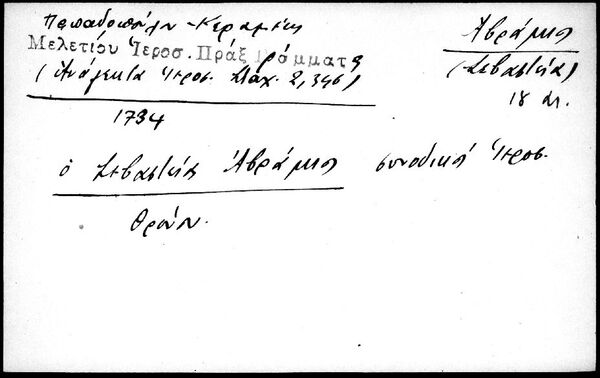 Παπαδοπούλου-Κεραμέως
Μελετίου Ἱεροσ. Πράξ Γράμματα
(Ἀνάλεκτα Ἱεροσ. Σταχ. 2, 346)
Ἀβράμιος
(Σεβαστείας)
18 αι.
1734
ὁ Σεβαστείας Ἀβράμιος συνοδικοῦ Ἱεροσ.
Θρόνου.